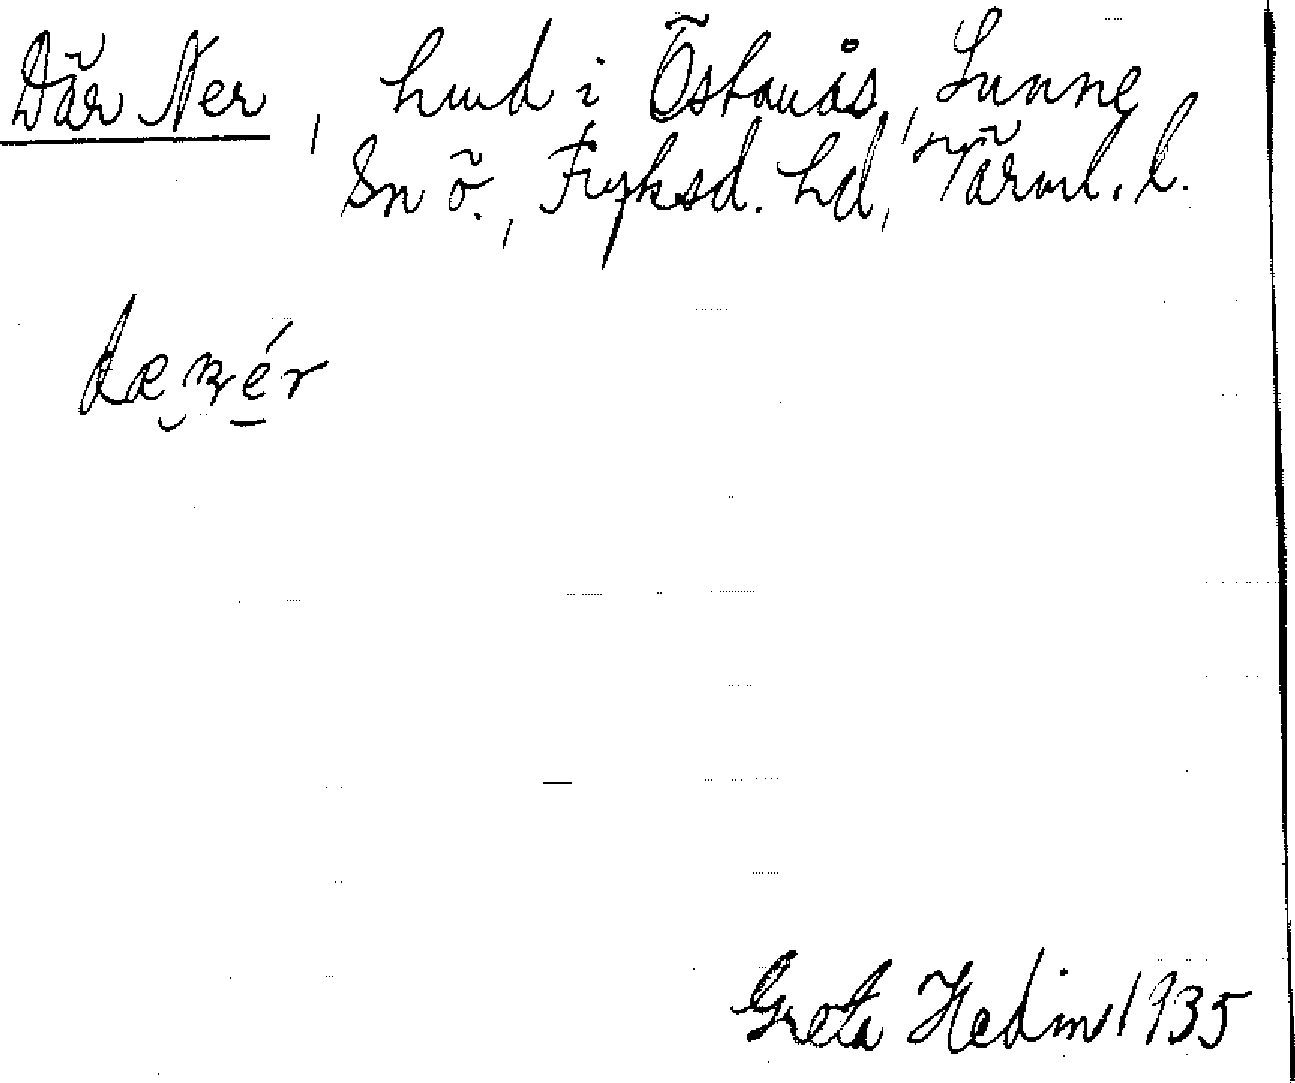 Där Ner, hmd i Östanås, Sunne
Sn ö., Fryksd. hd, Värml. l.
Greta Hedin 1935